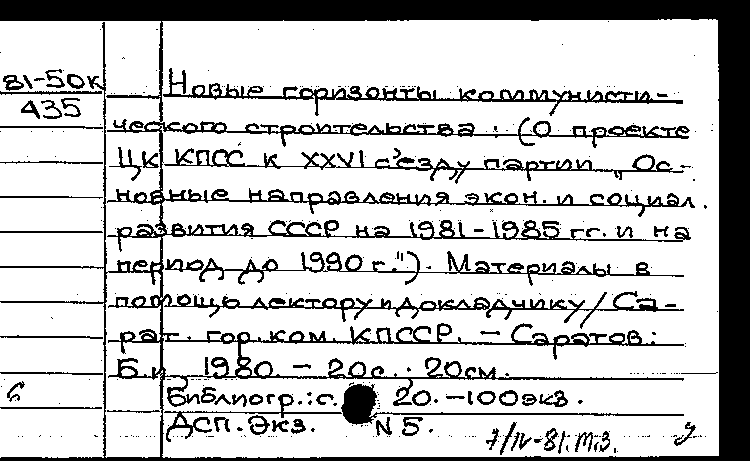 81-50К
435
Новые горизонты коммунисти-
ческого строительства : (О проекте
ЦК КПСС к XXVI с'езду партии „Ос-
новные направления экон. и социал.
развития СССР на 1981-1985 гг. и на
период до 1990 г."). Материалы в
помощь лектору и докладчику / Са-
рат. гор. ком. КПССР. – Саратов:
Б.и, 1980 – 20с.; 20см.
Библиогр.: с. 20. –100экз.
ДСП. Экз. N 5.
7/IV-81. М.З.